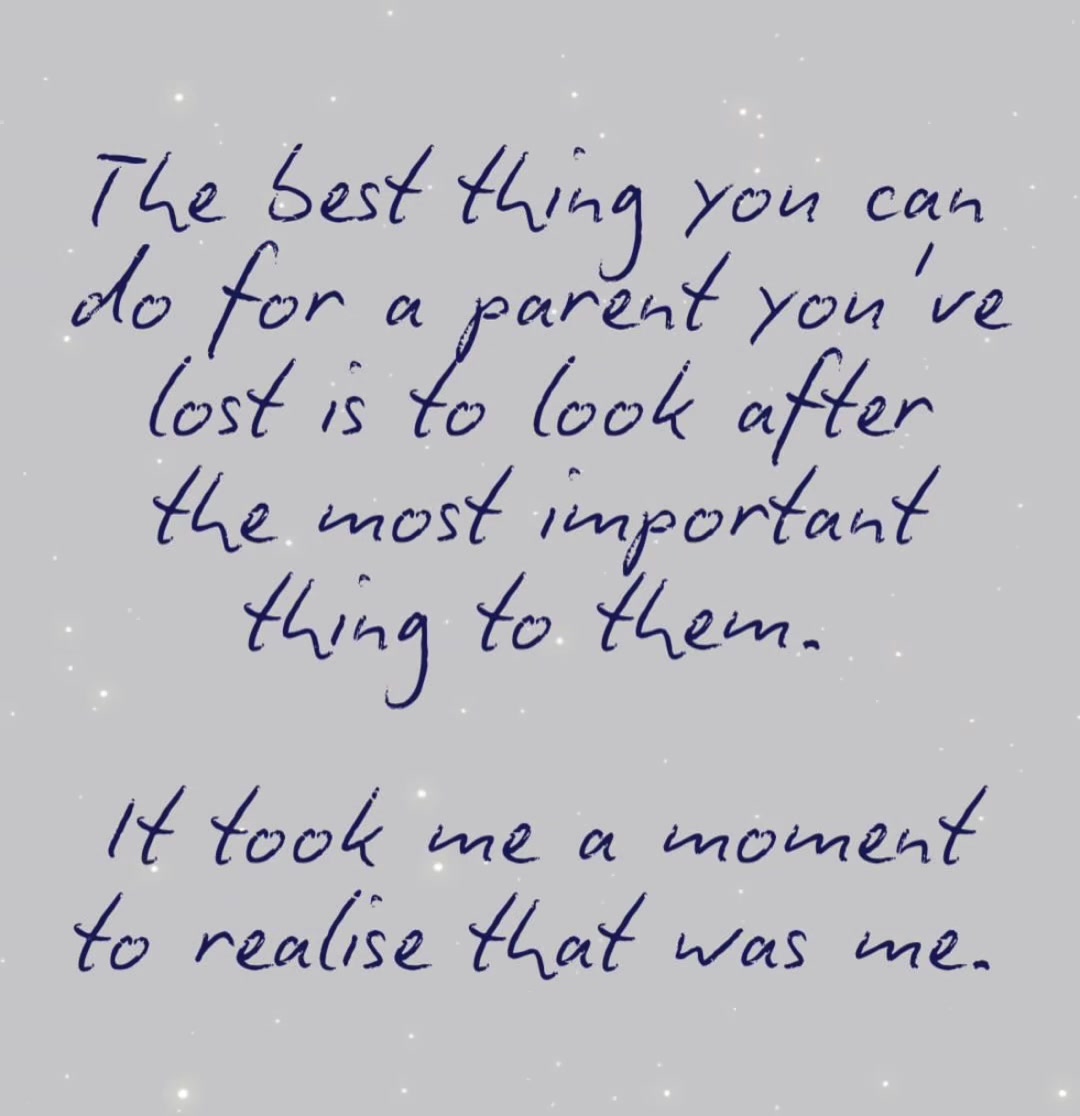 The best thing you can
do for a parent you've
lost is to look after
the most important
thing to them.
It took me a moment
to realise that was me.